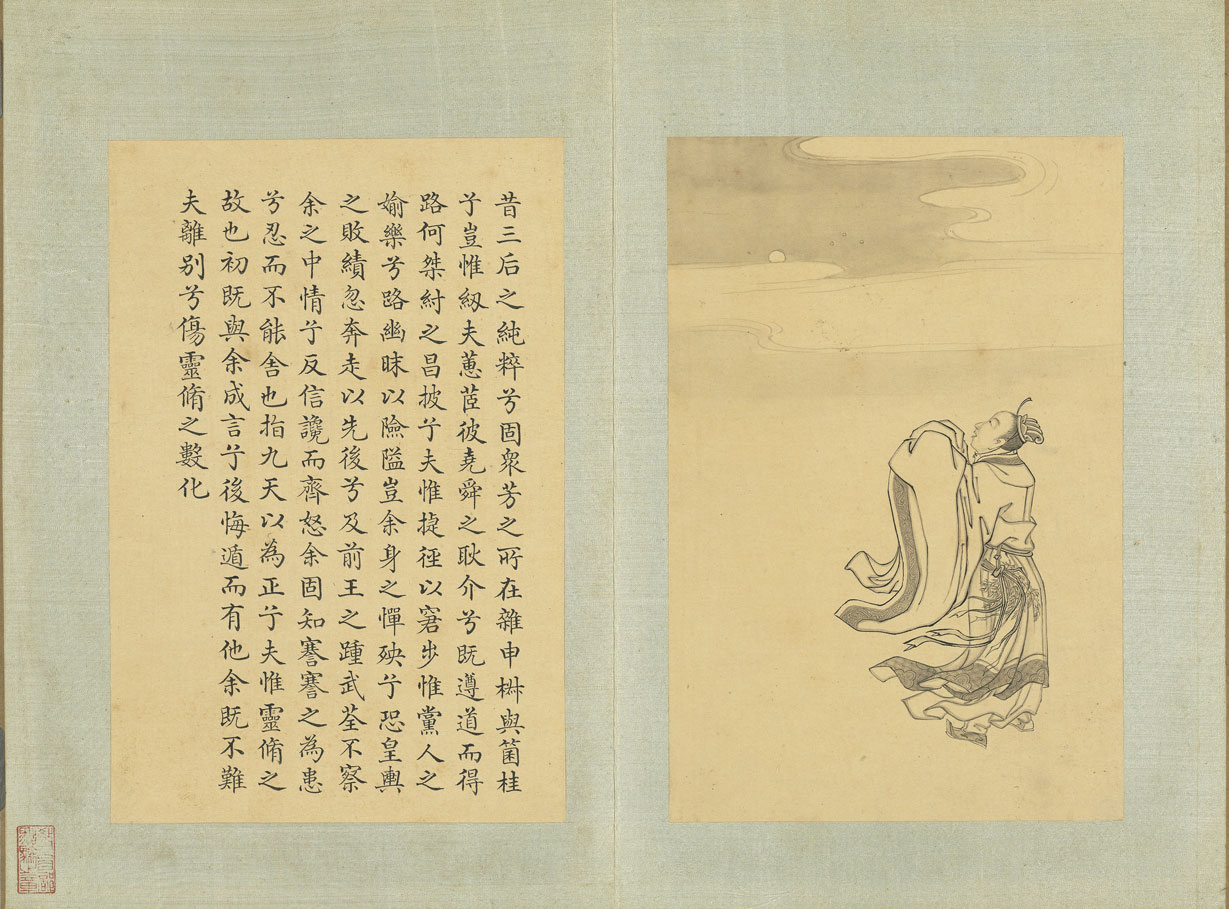 昔三后之純粹兮固衆芳之所在雜申椒與箘桂
兮豈惟紉夫蕙茝彼堯舜之耿介兮既遵道而得
路何桀紂之昌披兮夫惟捷徑以窘步惟黨人之
婾樂兮路幽昧以險隘豈余身之憚殃兮恐皇輿
之敗績忽奔走以先後兮及前王之踵武荃不察
余之中情兮反信讒而齊怒余固知謇謇之為患
兮忍而不能舍也指九天以為正兮夫惟靈脩之
故也初既與余成言兮後悔遁而有他余既不難
夫離別兮傷靈脩之數化